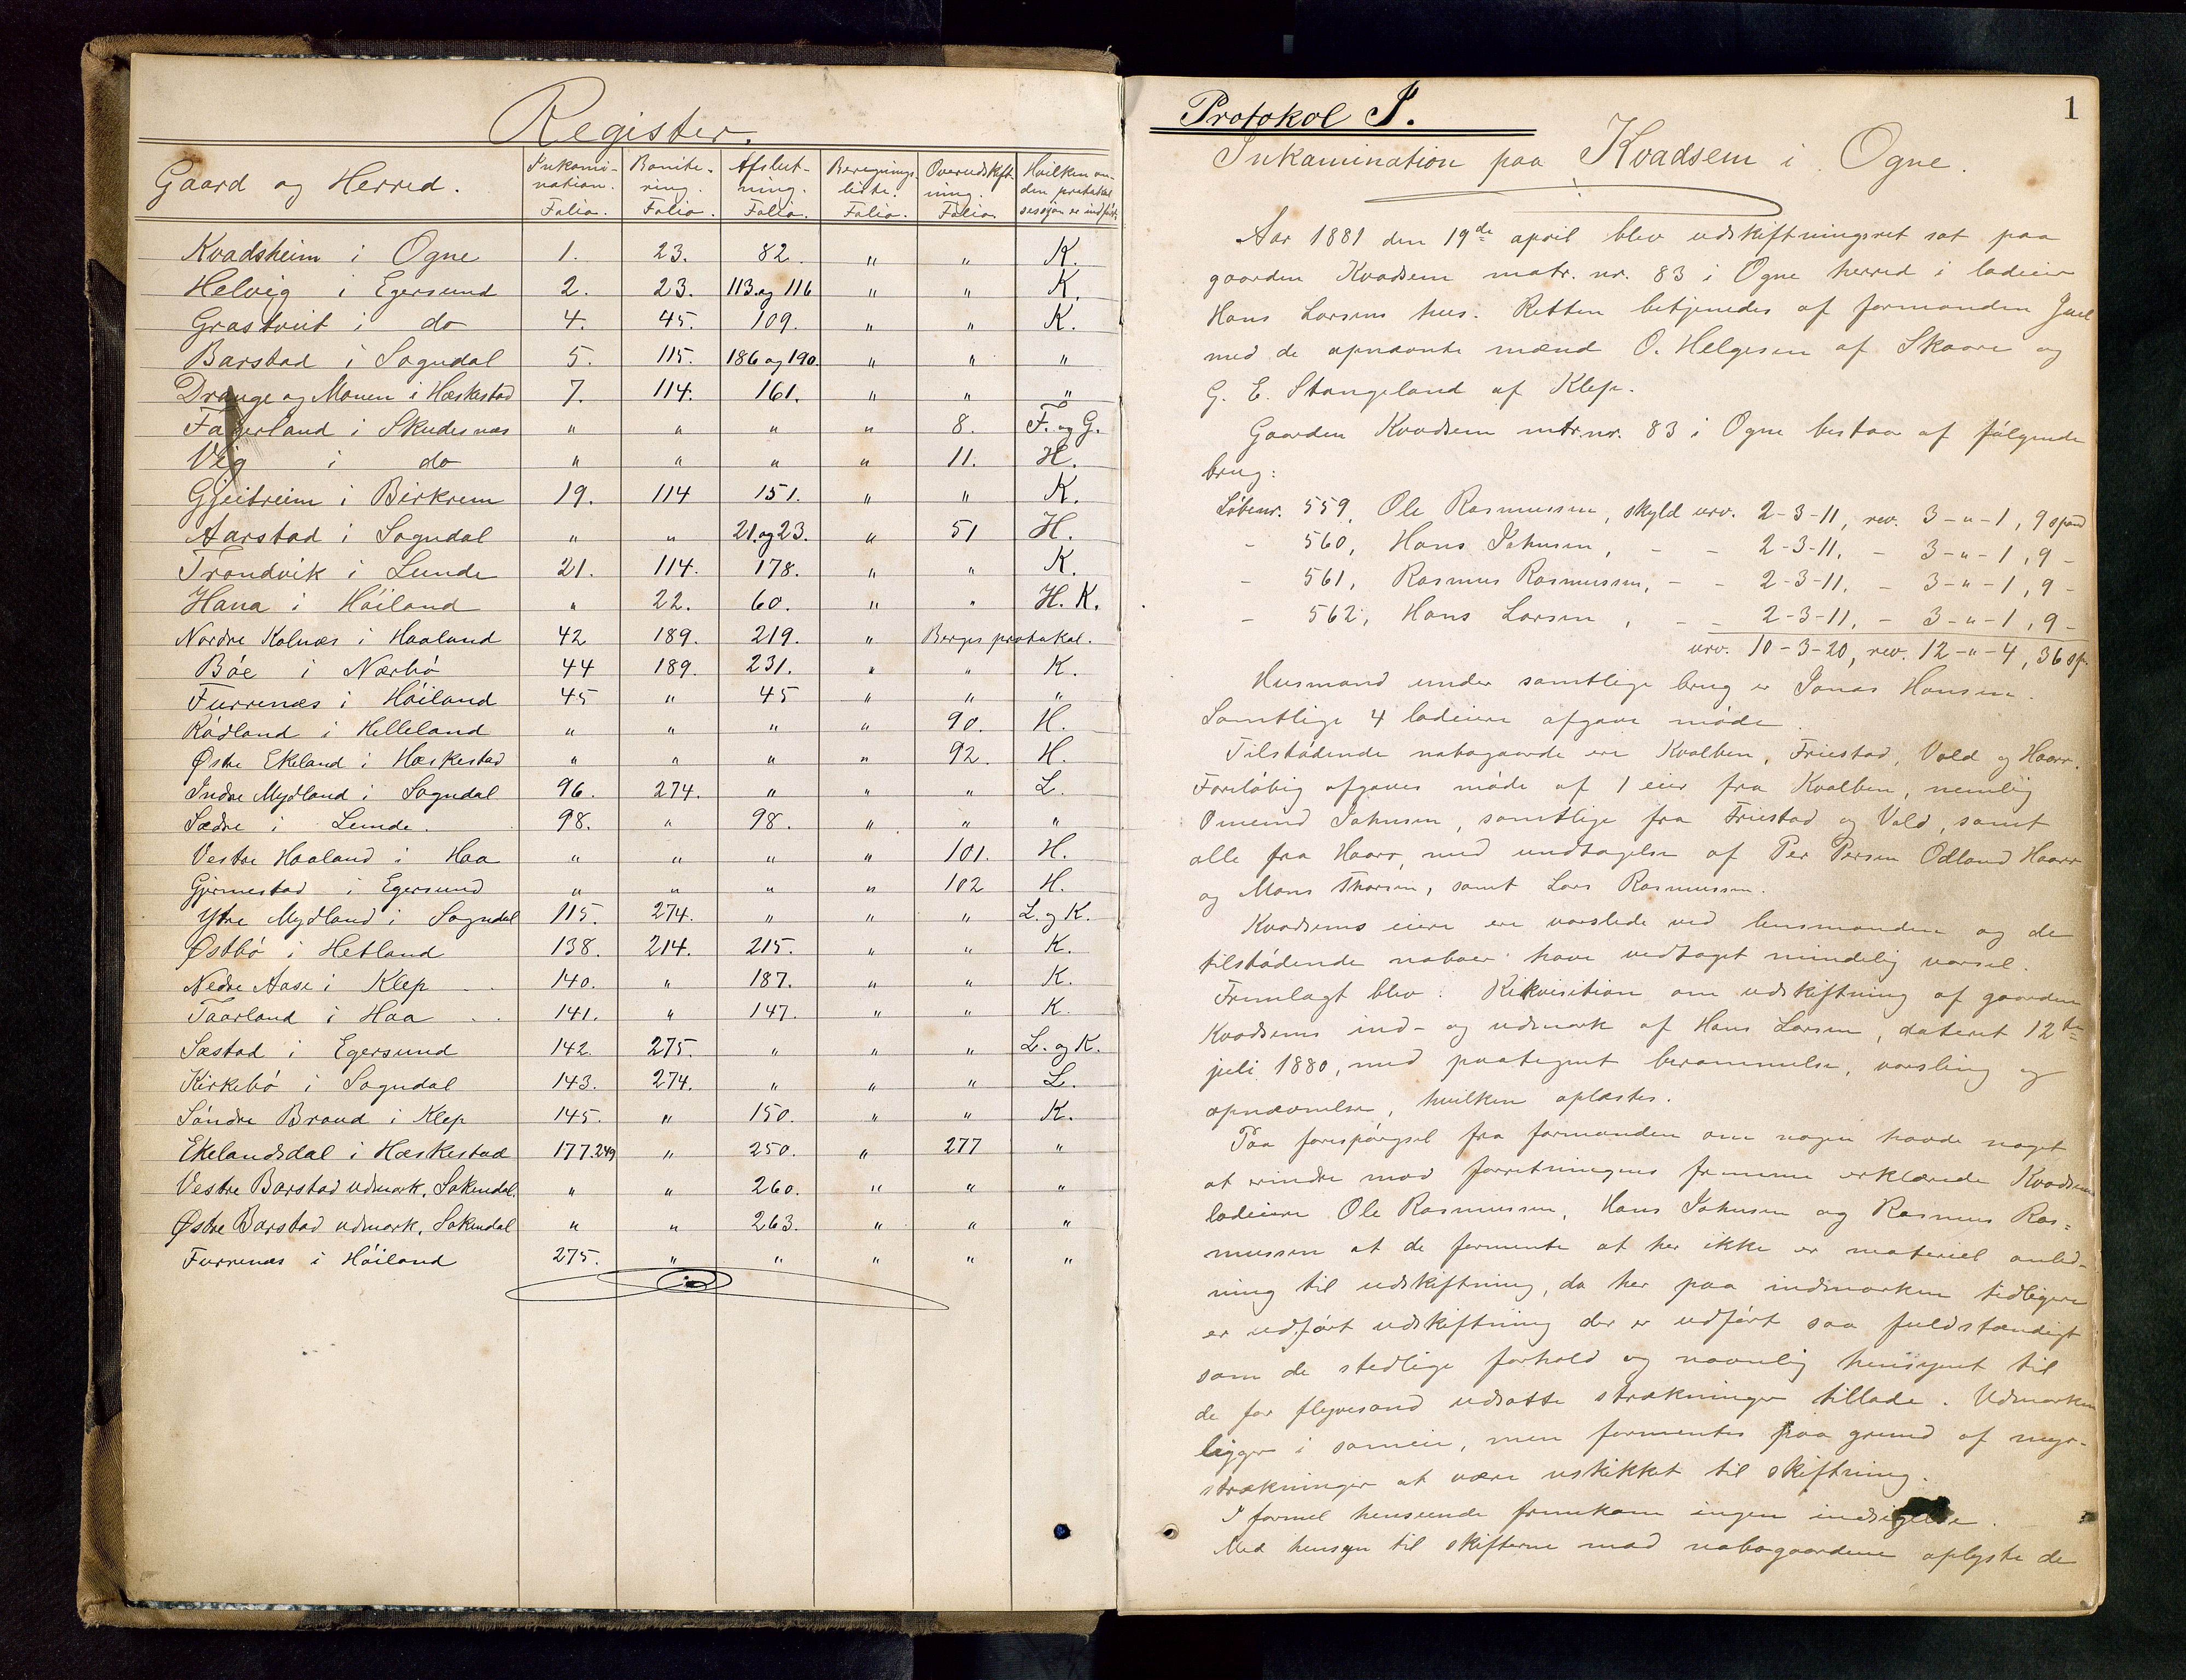 Register.
Gaard og Herred. Inkami-nation. Folio. Bonite-ring. Folio. Afslut-ning. Folio. Beregnings-liste. Folio. Overudskift-ning. Folio. Hvilken an-den protokol sessjon er indført
Kvadsheim i Ogne 1. 23. 82. " " K.
Helvig i Egersund 2. 23. 113. og 116 " " K.
Grastveit i do 4. 45. 109. " " K.
Barstad i Sogndal 5. 115. 186 og 190. " " "
Drange og Monen i Heskestad 7. 114. 161. " " "
Fagerland i Skudesnæs " " " " 8. F. og G.
Vig i do " " " " 11. H.
Gjeitreim i Birkrem 19. 114 151. " " K.
Aarstad i Sogndal " " 21. og 23. " 51 H.
Trondvik i Lunde 21. 114. 178. " " K.
Hana i Høiland " 22. 60. " " H. K.
Nordre Kolnæs i Haaland 42 189. 219. " Berges protokol.
Bøe i Nærbø 44 189. 231. " " K.
Furrenæs i Høiland 45 " 45 " " "
Rødland i Helleland " " " " 90. H.
Østre Ekeland i Heskestad " " " " 92. H.
Indre Mydland i Sogndal 96. 274. " " " L.
Sædre i Lunde. 98. " 98. " " "
Vestre Haaland i Haa " " " " 101. H.
Gjermestad i Egersund " " " " 102 H.
Ytre Mydland i Sogndal 115. 274. " " " L. og K.
Østbø i Hetland 138. 214. 215. " " K.
Nedre Aase i Klep 140. " 187. " " K.
Taarland i Haa 141. " 147. " " K.
Sæstad i Egersund 142. 275. " " " L. og K.
Kirkebø i Sogndal 143. 274. " " " L.
Søndre Braud i Klep 145. " 150. " " K.
Ekelandsdal i Heskestad 177.249 " 250. " 277 "
Vestre Barstad udmark, Sokndal. " " 260. " " "
Østre Barstad udmark, Sokndal " " 263. " " "
Furrenæs i Høiland 275. " " " " "
Protokol I. 1
Inkamination paa Kvadsem i Ogne.
Aar 1881 den 19de april blev udskiftningsret sat paa
gaarden Kvadsem matr. nr. 83 i Ogne herred i ladeier
Hans Larsens hus. Retten betjenedes af formanden Juel
med de opnævnte mænd O. Helgesen af Skaare og
G. E. Stangeland af Klep.
Gaarden Kvadsem mtr. nr. 83 i Ogne bestaar af følgende
brug:
Løbenr. 559, Ole Rasmussen, skyld urv. 2-3-11, rev. 3-"-1, 9 spand
- 560, Hans Johnsen, - - 2-3-11. - 3-"-1, 9 -
- 561, Rasmus Rasmussen, - - 2-3-11. - 3-"-1, 9 -
- 562, Hans Larsen, - - 2-3-11. - 3-"-1, 9 -
urv. 10-3-20, rev. 12-"-4, 36 sp.
Husmand under samtlige brug er Jonas Hansen.
Samtlige 4 ladeiere afgave møde.
Tilstødende nabogaarde ere Kvalben, Friestad, Vold og Haarr.
Foreløbig afgaves møde af 1 eier fra Kvalben, nemlig
Omund Johnsen, samtlige fra Friestad og Vold, samt
alle fra Haarr, med undtagelse af Per Persen Ødland Haarr
og Mons Thorsen, samt Lars Rasmussen.
Kvadsems eiere ere varslede ved lensmanden og de
tilstødende naboer have vedtaget mindelig varsel.
Fremlagt blev: Rekvisition om udskiftning af gaarden
Kvadsems ind- og udmark af Hans Larsen, dateret 12te
juli 1880, med paategnet berammelse, varsling og
opnævnelse, hvilken oplæstes.
Paa forespørgsel fra formanden om nogen havde noget
at erindre mod forretningens fremme erklærede Kvadsems
ladeiere Ole Rasmussen, Hans Johnsen og Rasmus Ras=
mussen at de formente at her ikke er materiel anled-
ning til udskiftning, da her paa indmarken tidligere
er udført udskiftning der er udført saa fuldstændigt
som de stedlige forhold og navnlig hensynet til
de for flyvesand udsatte strækninger tillade. Udmarken
ligger i sameie, men formentes paa grund af myr-
strækninger at være uskikket til skiftning.
I formel henseende fremkom ingen indsigelse.
Med hensyn til skifterne mod nabogaardene oplyste de